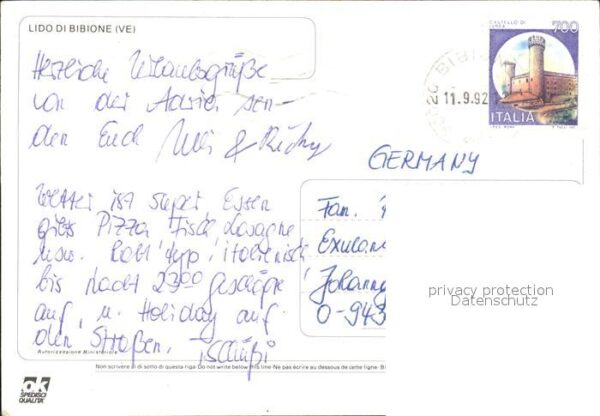 LIDO DI BIBIONE (VE)
CASTELLO DI
IVREA
700
ITALIA
BIBIO
11.9.92
Herzliche Urlaubsgrüße
von der Adria sen-
den Euch & Richy
GERMANY
Wetter ist super Essen
gibts Pizza Fisch Lasagne
usw. typ. italienisch
bis Nacht 23⁰⁰ Geschäfte
auf, u. Holiday auf
den Straßen.
Tschüßi
Fam.
Exulan
Johann
O-943
privacy protection
Datenschutz
Autorizzazione Ministeriale
Non scrivere al di sotto di questa riga· Do not write below this line· Ne pas écrire au dessous de cette ligne· Bi
ok
SPEDISCI
QUALITA'